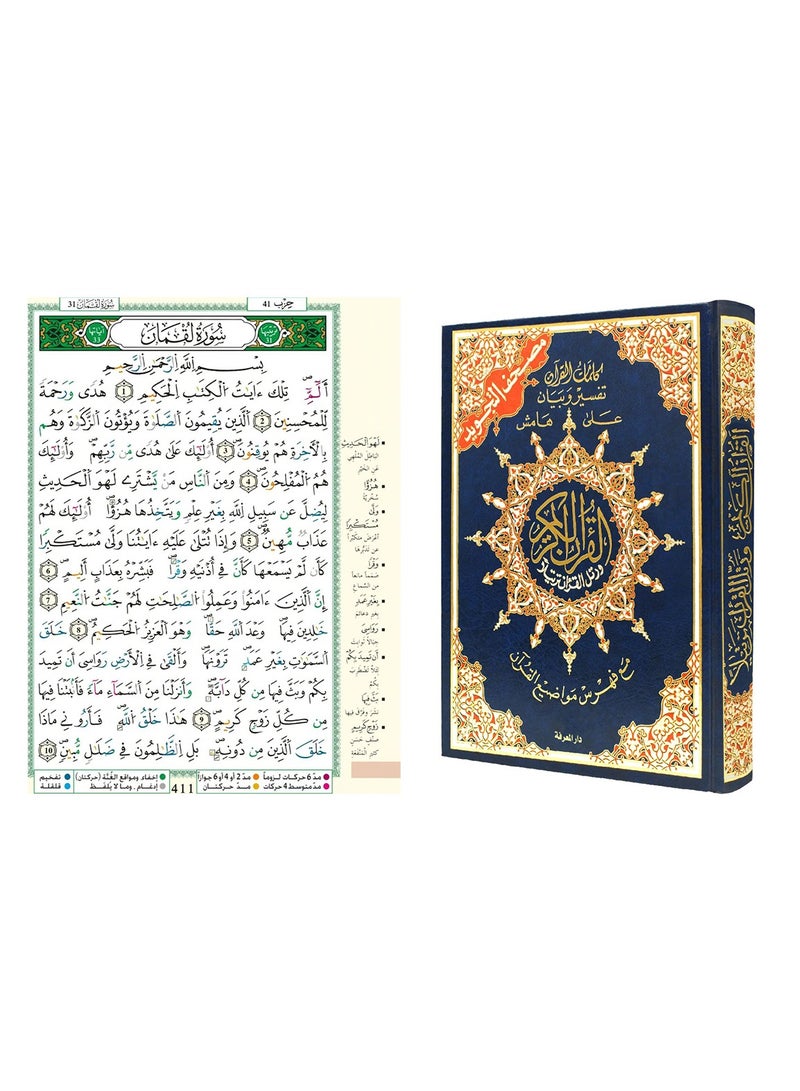 سُورَةُ لُقْمَان 31
حِزب 41
ترتيبها 31
سُورَةُ لُقْمَان
آياتها
بِسْمِ اللَّهِ الرَّحْمَٰنِ الرَّحِيمِ
الٓمٓ ۝1 تِلْكَ ءَايَٰتُ الْكِتَٰبِ الْحَكِيمِ ۝2 هُدًى وَرَحْمَةً
لِّلْمُحْسِنِينَ ۝3 الَّذِينَ يُقِيمُونَ الصَّلَوٰةَ وَيُؤْتُونَ الزَّكَوٰةَ وَهُم
بِالْأَخِرَةِ هُمْ يُوقِنُونَ ۝4 أُولَٰٓئِكَ عَلَىٰ هُدًى مِّن رَّبِّهِمْ ۖ وَأُولَٰٓئِكَ
هُمُ الْمُفْلِحُونَ ۝5 وَمِنَ النَّاسِ مَن يَشْتَرِى لَهْوَ الْحَدِيثِ
لِيُضِلَّ عَن سَبِيلِ اللَّهِ بِغَيْرِ عِلْمٍ وَيَتَّخِذَهَا هُزُوًا ۚ أُولَٰٓئِكَ لَهُمْ
عَذَابٌ مُّهِينٌ ۝6 وَإِذَا تُتْلَىٰ عَلَيْهِ ءَايَٰتُنَا وَلَّىٰ مُسْتَكْبِرًا
كَأَن لَّمْ يَسْمَعْهَا كَأَنَّ فِىٓ أُذُنَيْهِ وَقْرًا ۖ فَبَشِّرْهُ بِعَذَابٍ أَلِيمٍ ۝7
إِنَّ الَّذِينَ ءَامَنُوا وَعَمِلُوا الصَّٰلِحَٰتِ لَهُمْ جَنَّٰتُ النَّعِيمِ ۝8
خَٰلِدِينَ فِيهَا ۖ وَعْدَ اللَّهِ حَقًّا ۚ وَهُوَ الْعَزِيزُ الْحَكِيمُ ۝9 خَلَقَ
السَّمَٰوَٰتِ بِغَيْرِ عَمَدٍ تَرَوْنَهَا ۖ وَأَلْقَىٰ فِى الْأَرْضِ رَوَٰسِىَ أَن تَمِيدَ
بِكُمْ وَبَثَّ فِيهَا مِن كُلِّ دَآبَّةٍ ۚ وَأَنزَلْنَا مِنَ السَّمَآءِ مَآءً فَأَنۢبَتْنَا فِيهَا
مِن كُلِّ زَوْجٍ كَرِيمٍ ۝10 هَٰذَا خَلْقُ اللَّهِ فَأَرُونِى مَاذَا
خَلَقَ الَّذِينَ مِن دُونِهِ ۚ بَلِ الظَّٰلِمُونَ فِى ضَلَٰلٍ مُّبِينٍ
لَهْوَ الْحَدِيثِ
الباطل المُلهي
عن الخير
هُزُوًا
سُخريَة
وَلَّىٰ
مُسْتَكْبِرًا
أعرض متكبرًا
عن تدبرها
وَقْرًا
صممًا مانعًا
من السماع
بِغَيْرِ عَمَدٍ
بغير دعائم
رَوَٰسِىَ
جبالًا ثوابت
أَن تَمِيدَ بِكُمْ
لئلا تضطرب
بكم
بَثَّ فِيهَا
نشر وفرّق فيها
زَوْجٍ كَرِيمٍ
صنف حسن
كثير المنفعة
مدّ 6 حركات لزوماً مدّ 2 أو 4 أو 6 جوازاً
مدّ متوسط 4 حركات مدّ حركتان
411
إخفاء ومواقع الغُنَّة (حركتان) تفخيم
إدغام . وما لا يُلفَظ قلقلة
مصحف التجويد
كلمات القرآن
تفسير وبيان
على هامش
القرآن الكريم
ورتل القرآن ترتيلا
مع فهرس مواضيع القرآن
دار المعرفة
القرآن الكريم ورتل القرآن ترتيلا